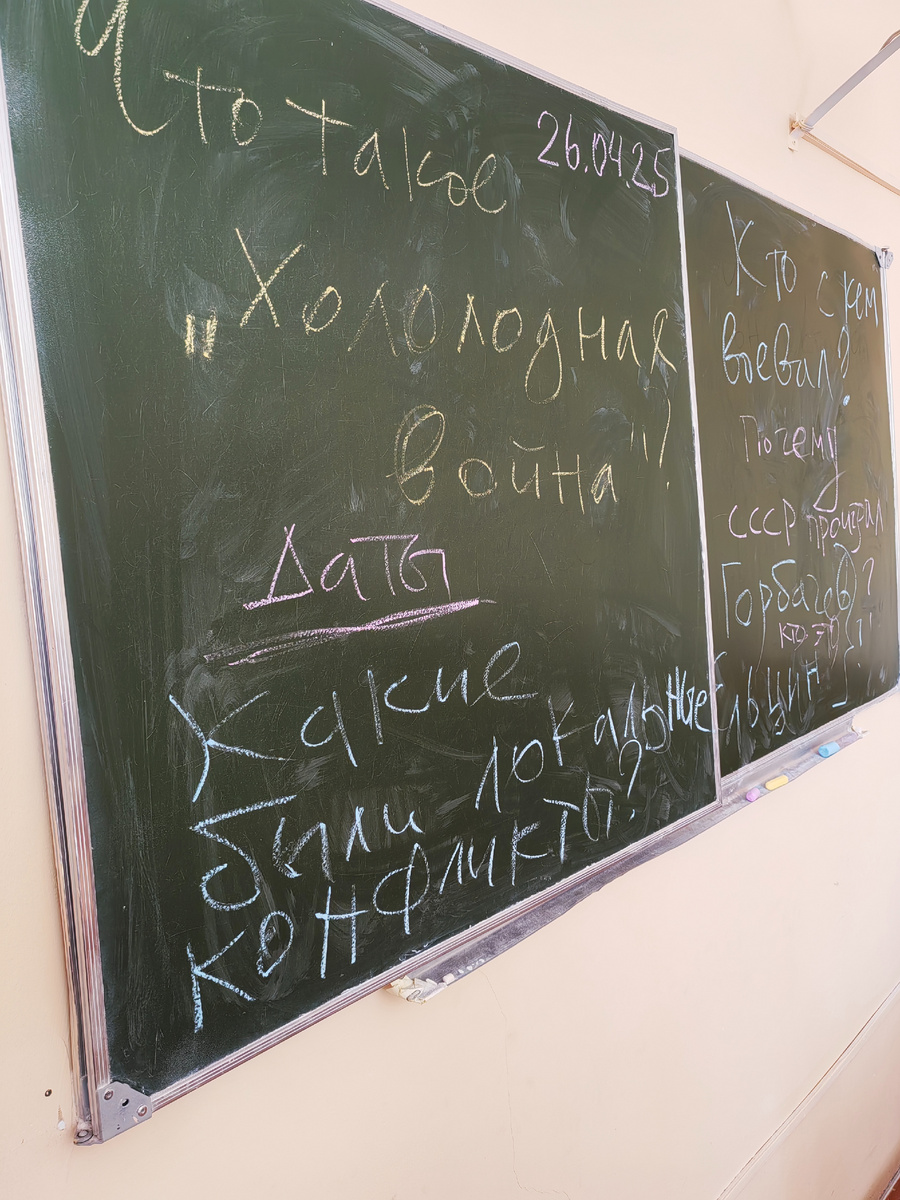 Что такое
26.04.25
„Хололодная
война"?
Даты
Какие
были локальные
конфликты?
Кто с кем
воевал?
Почему
СССР проиграл
Горбачев }?
кто это }?
Ельцин }?